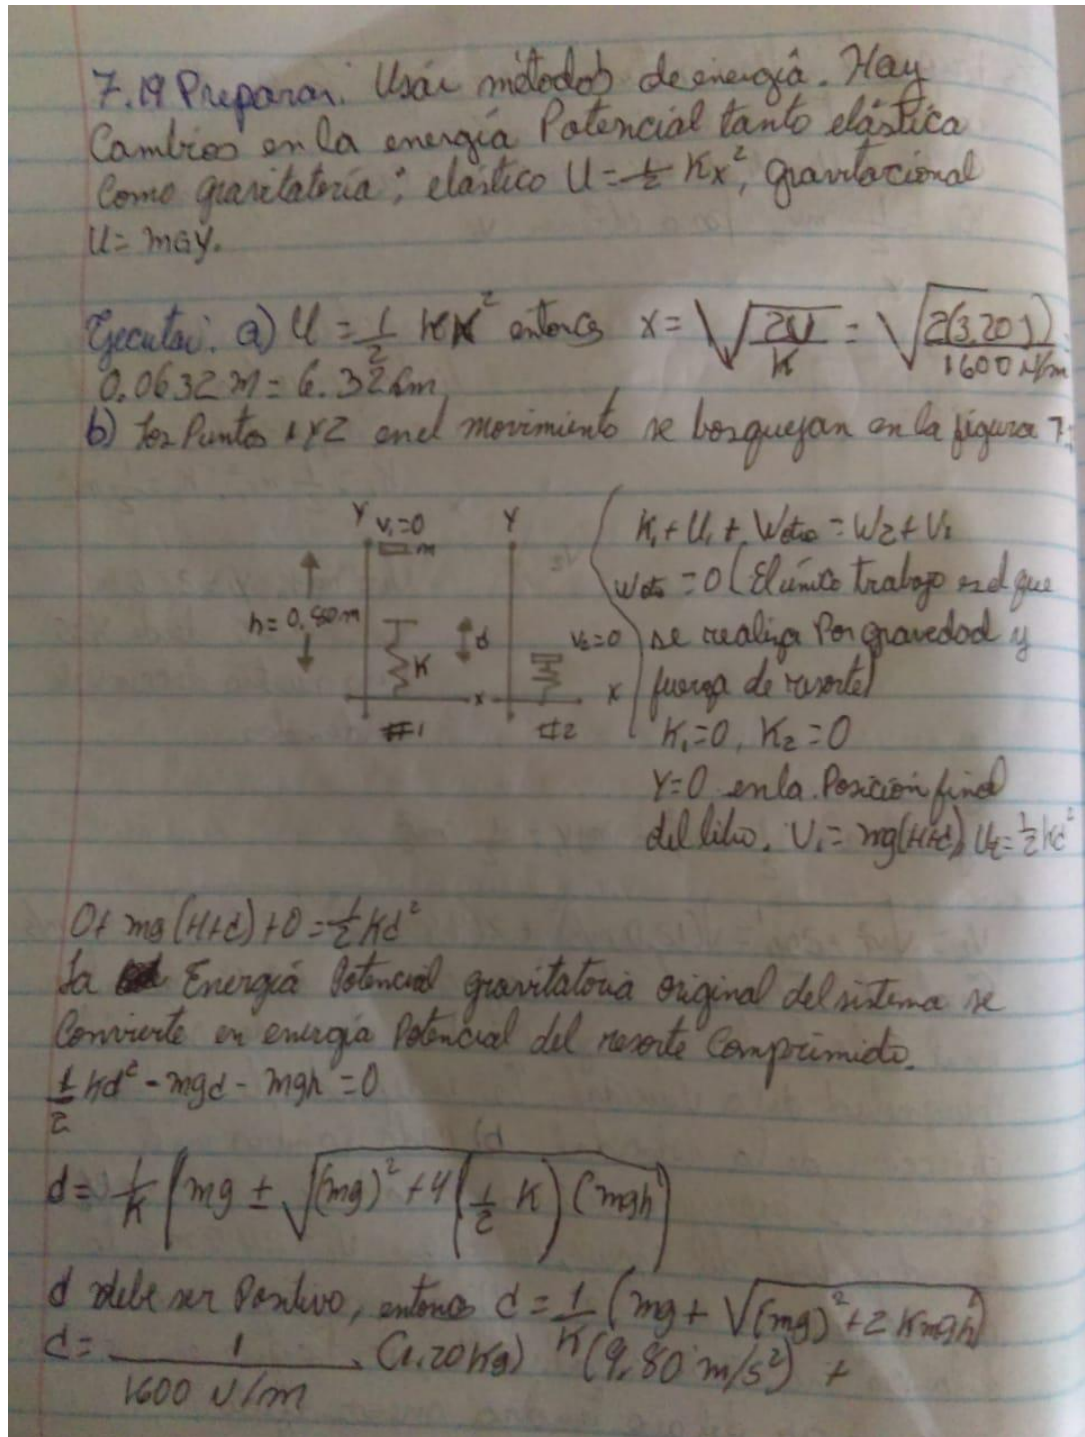 7.19 Preparar. Usar métodos de energía. Hay
Cambios en la energía Potencial tanto elástica
Como gravitatoria; elástico U = 1/2 Kx², gravitacional
U = mGy.
Ejecutar. a) U = 1/2 KX² entonces x = √(2U/K) = √(2(3.20 J)/1600 N/m)
0.0632 m = 6.32 cm
b) Los Puntos 1 y 2 en el movimiento se bosquejan en la figura 7.
Y V₁=0
m
h = 0.80 m
K
d
x
#1
Y
V₂=0
x
#2
K₁ + U₁ + Wotro = W2 + V₂
Wotro = 0 (El único trabajo es el que
se realiza Por gravedad y
fuerza de resorte)
K₁=0, K₂=0
Y=0 en la Posición final
del libro. U₁ = mg(H+d), U₂ = 1/2 kd²
0 + mg (H+d) + 0 = 1/2 Kd²
La Energía Potencial gravitatoria original del sistema se
Convierte en energía Potencial del resorte Comprimido.
1/2 Kd² - mgd - mgh = 0
d = 1/K (mg ± √((mg)² + 4(1/2 K)(mgh)))
d debe ser Positivo, entonces d = 1/K (mg + √((mg)² + 2 Kmgh))
d = 1/1600 N/m (1.20 Kg) (9.80 m/s²) +